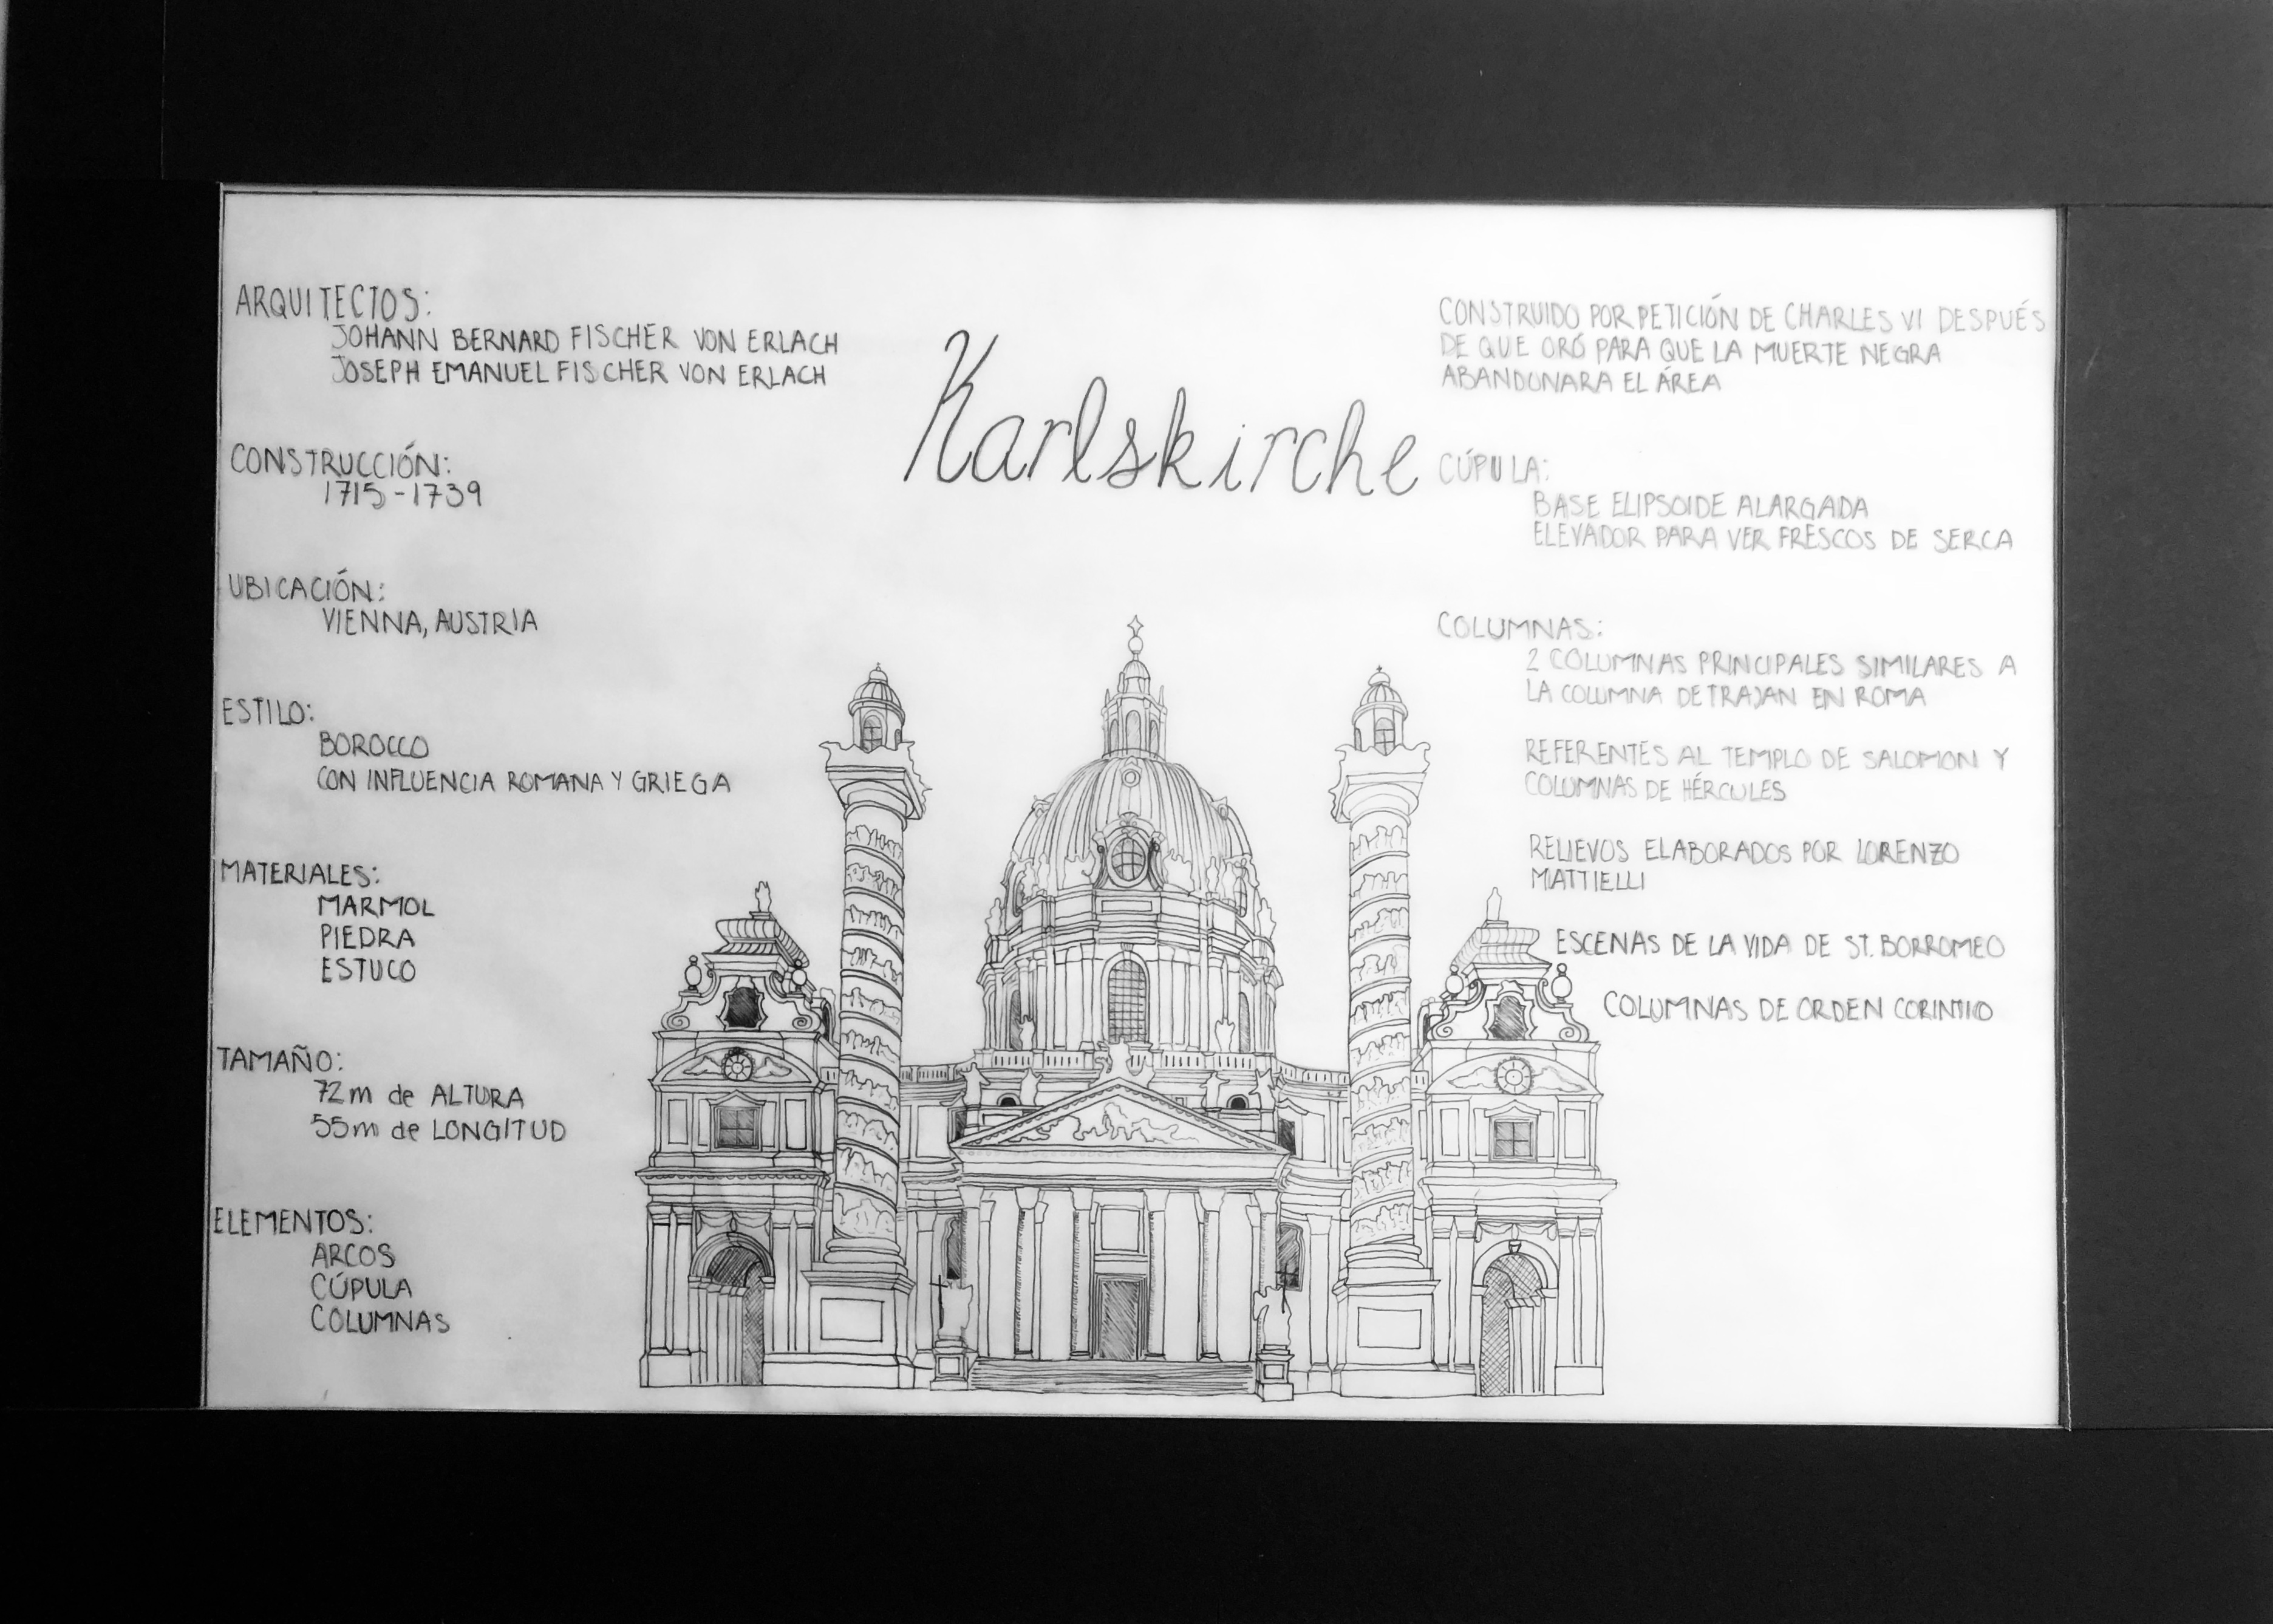 Karlskirche
ARQUITECTOS:
JOHANN BERNARD FISCHER VON ERLACH
JOSEPH EMANUEL FISCHER VON ERLACH
CONSTRUCCIÓN:
1715-1739
UBICACIÓN:
VIENNA, AUSTRIA
ESTILO:
BOROCCO
CON INFLUENCIA ROMANA Y GRIEGA
MATERIALES:
MARMOL
PIEDRA
ESTUCO
TAMAÑO:
72m de ALTURA
55m de LONGITUD
ELEMENTOS:
ARCOS
CÚPULA
COLUMNAS
CONSTRUIDO POR PETICIÓN DE CHARLES VI DESPUÉS
DE QUE ORÓ PARA QUE LA MUERTE NEGRA
ABANDONARA EL ÁREA
CÚPULA:
BASE ELIPSOIDE ALARGADA
ELEVADOR PARA VER FRESCOS DE SERCA
COLUMNAS:
2 COLUMNAS PRINCIPALES SIMILARES A
LA COLUMNA DE TRAJAN EN ROMA
REFERENTES AL TEMPLO DE SALOMON Y
COLUMNAS DE HÉRCULES
RELIEVOS ELABORADOS POR LORENZO
MATTIELLI
ESCENAS DE LA VIDA DE ST. BORROMEO
COLUMNAS DE ORDEN CORINTIIO